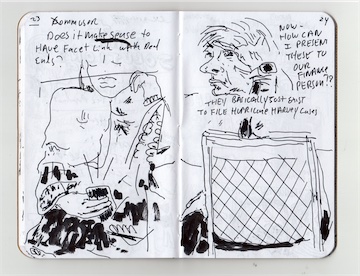 23
Does it make sense to
Have Facet Link with Red
Ends?
24
Now -
How can
I present
these to
our
finance
person??
They basically just exist
to file Hurricane Harvey cases